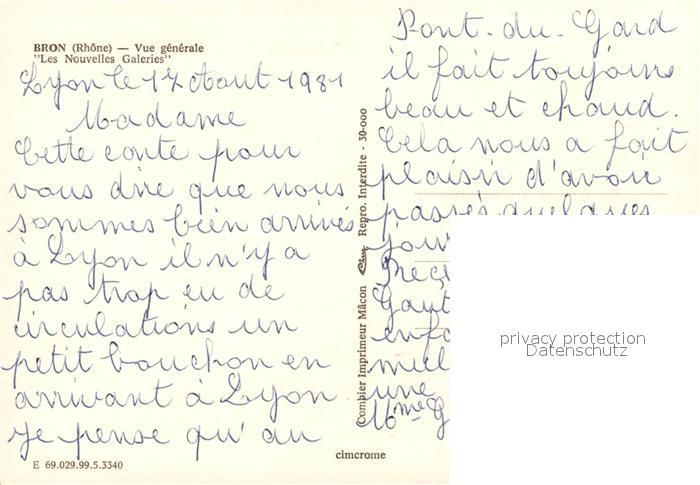 BRON (Rhône) — Vue générale
"Les Nouvelles Galeries"
Lyon le 17 Aout 1981
Madame
Cette conte pour
vous dire que nous
sommes bien arrivés
à Lyon il n'y a
pas trop eu de
circulations un
petit bouchon en
arrivant à Lyon
je pense qu'au
E 69.029.99.5.3340
cimcrome
Combier Imprimeur Mâcon Cim Repro. Interdite - 30-000
Pont-du-Gard
il fait toujours
beau et chaud.
Cela nous a fait
plaisir d'avoir
passés quelques
jour
Gaut
enfa
une
Mme G
privacy protection
Datenschutz